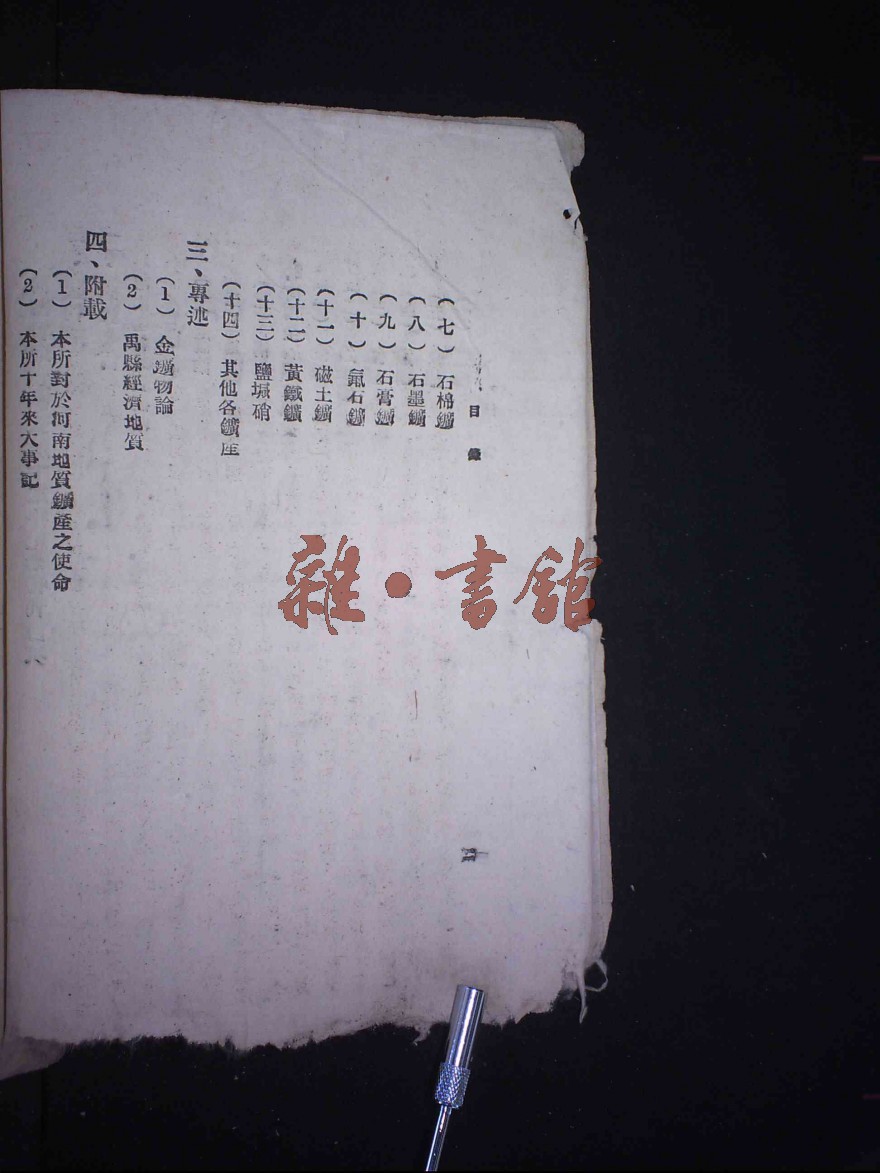 目錄
(七) 石棉鑛
(八) 石墨鑛
(九) 石膏鑛
(十) 氟石鑛
(十一) 磁土鑛
(十二) 黃鐵鑛
(十三) 鹽堿硝
(十四) 其他各鑛產
三、專述
(1) 金鑛物論
(2) 禹縣經濟地質
四、附載
(1) 本所對於河南地質鑛產之使命
(2) 本所十年來大事記
四
雜·書館